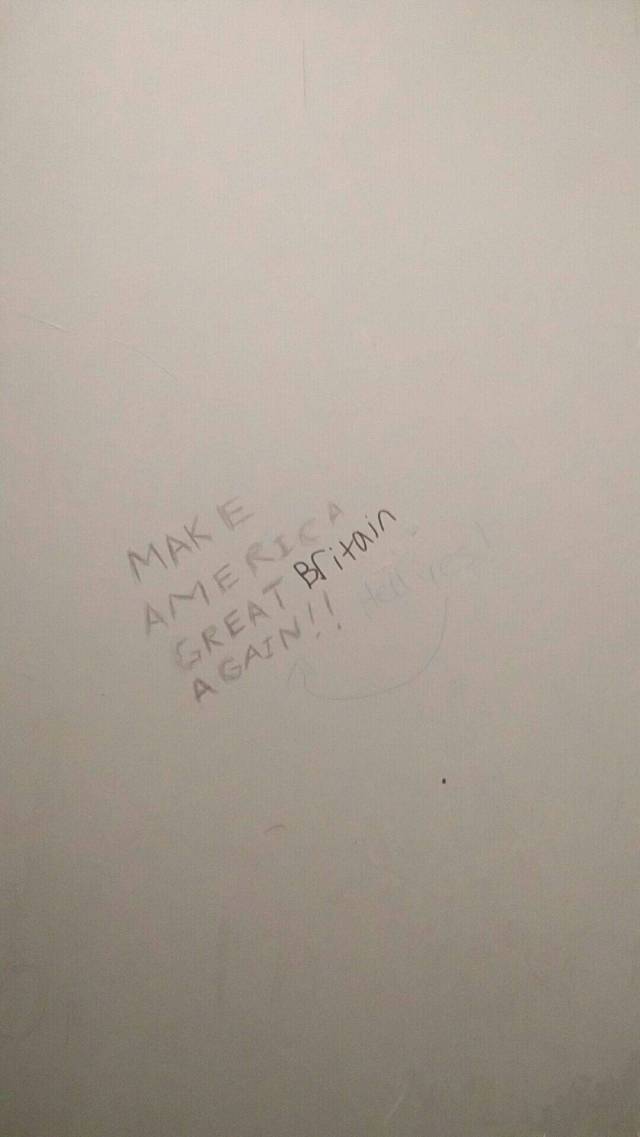 MAKE
AMERICA
GREAT Britain
AGAIN!!
Hell yes!